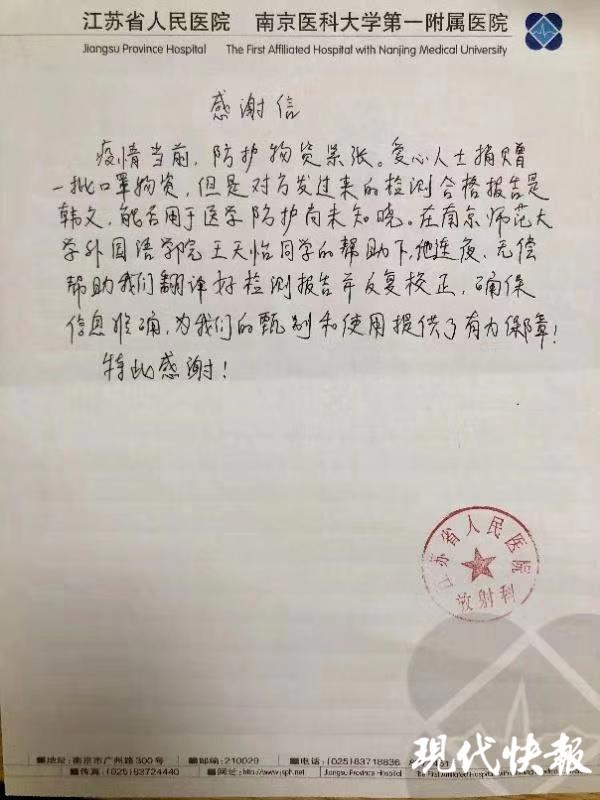 江苏省人民医院 南京医科大学第一附属医院
Jiangsu Province Hospital The First Affiliated Hospital with Nanjing Medical University
感谢信
疫情当前，防护物资紧张。爱心人士捐赠
一批口罩物资，但是对方发过来的检测合格报告是
韩文，能否用于医学防护尚未知晓。在南京师范大
学外国语学院王天怡同学的帮助下，他连夜、无偿
帮助我们翻译好检测报告并反复校正，确保
信息准确，为我们的甄别和使用提供了有力保障！
特此感谢！
江苏省人民医院
放射科
地址：南京市广州路300号 邮编：210029 电话：(025)83718836
传真：(025)83724440 网址：http://www.jsph.net Jiangsu Province Hospital The First Affiliated Hospital with
现代快報